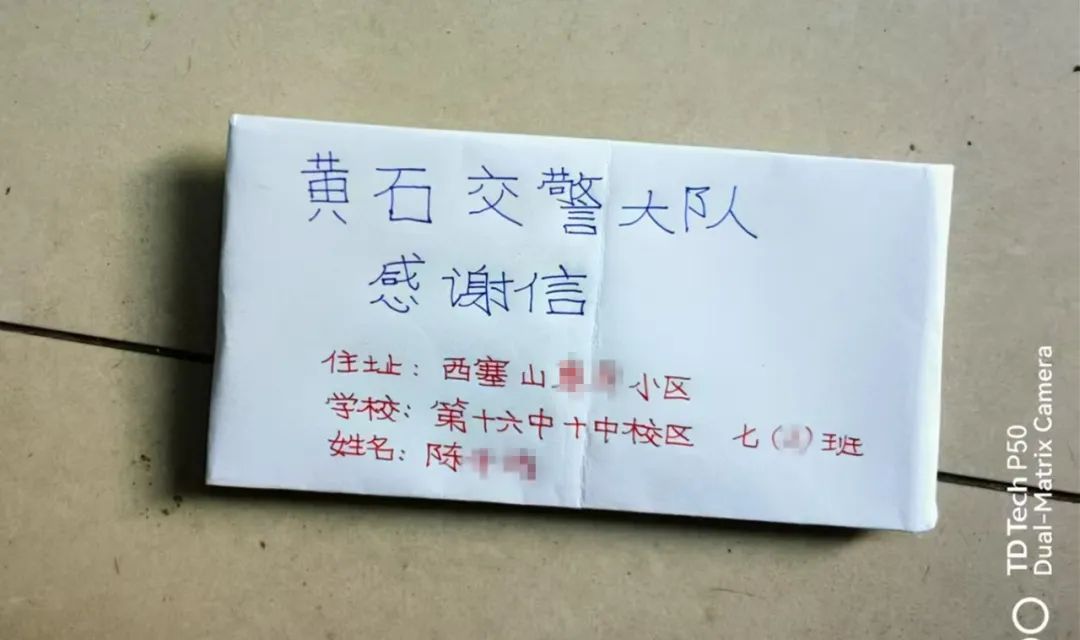 黄石交警大队
感谢信
住址：西塞山小区
学校：第十六中十中校区 七（）班
姓名：陈
TD Tech P50
Dual-Matrix Camera